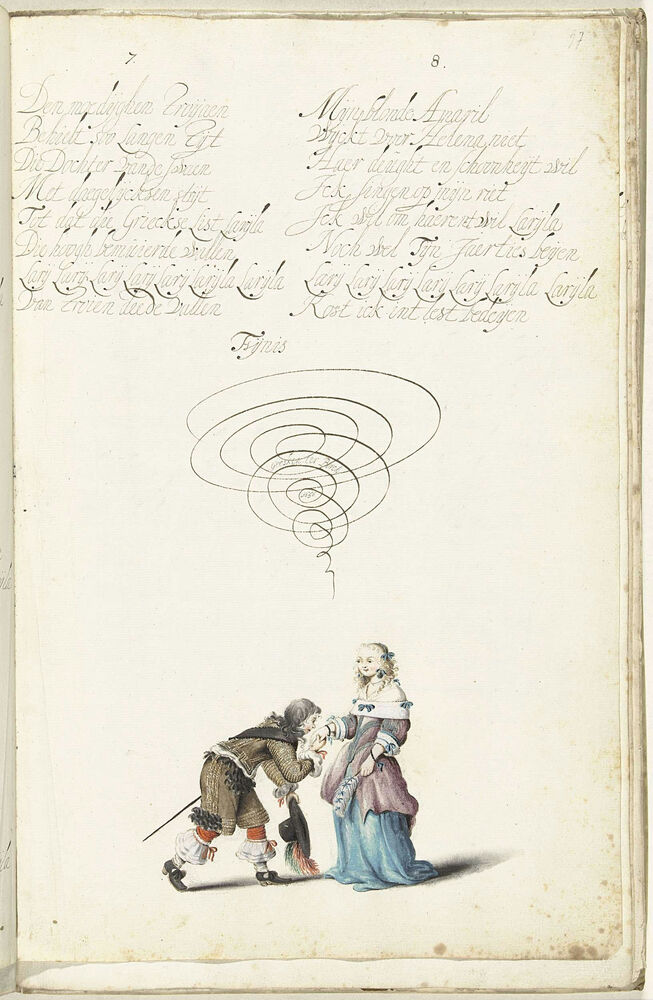 97
7.
Den moedighen Troijnen
Behielt soo langen tijt
Die Dochter vande swaen
Met daegelijcksen strijt
Tot dat die Grieckse List Larijla
Die hoogh beminierde wallen
Larij Larij Larij Larij Larij Larijla Larijla
Van Troien deede vallen
8.
Mijn blonde Amaril
Wijckt voor Helena niet
Haer deught en schoonheijt wil
Ick singen op mijn riet
Ick wil om haerent wil Larijla
Noch wel Tijn Jaerties beijen
Larij Larij Larij Larij Larij Larijla Larijla
Kost ick int lest bedeijen
Fijnis
Gesken ter Borch